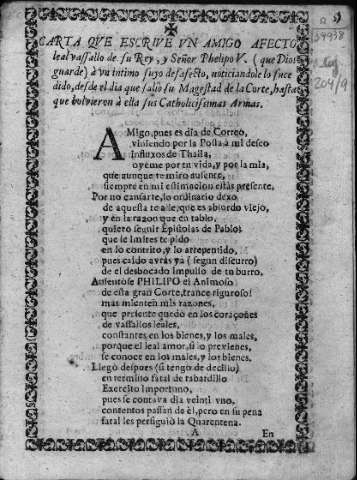 CARTA QVE ESCRIVE VN AMIGO AFECTO
leal vassallo de su Rey, y Señor Phelipo V. (que Dios
guarde) à vn intimo suyo desafecto, noticiandole lo suce
dido, desde el dia que saliò su Magestad de la Corte, hasta
que bolvieron à ella sus Catholicissimas Armas.
AMigo, pues es dia de Correo,
viniendo por la Posta à mi deseo
Influxos de Thalia,
oyeme por tu vida, y por la mia,
que aunque te miro ausente,
siempre en mi estimacion estàs presente.
Por no cansarte, lo ordinario dexo
de aquesta te alle, que es absurdo viejo,
y en la razon que entablo,
quiero seguir Epistolas de Pablo:
que le imites te pido
en lo contrito, y lo arrepentido,
pues caido avràs ya (segun discurro)
de el desbocado impulso de tu burro.
Ausentose PHILIPO el Animoso
de esta gran Corte, trance riguroso!
mas mienten mis razones,
que presente quedò en los coraçones
de vassallos leales,
constantes en los bienes, y los males,
porque el leal amor, si lo previenes,
se conoce en los males, y los bienes.
Llegò despues (si tengo de decillo)
en termino fatal de tabardillo
Exercito importuno,
pues se contava dia veinti vno,
contentos passan de èl, pero en su pena
fatal les persiguiò la Quarentena.
A
En